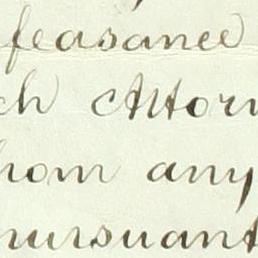 feasance
ch Attor
hom any
pursuant